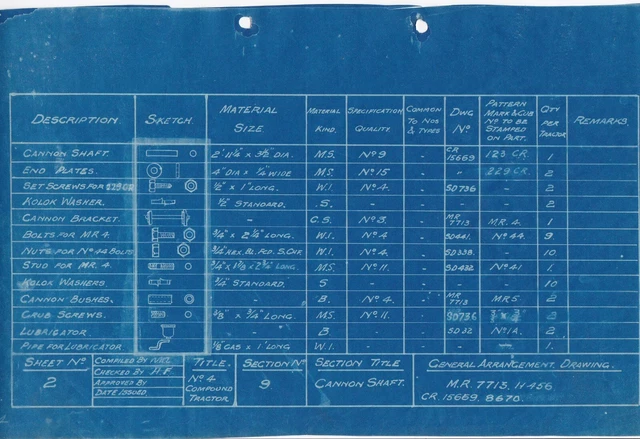 DESCRIPTION. SKETCH. MATERIAL SIZE. MATERIAL KIND. SPECIFICATION QUALITY. COMMON TO NOS & TYPES DWG Nº PATTERN MARK & CUB Nº TO BE STAMPED ON PART. QTY PER TRACTOR REMARKS.
CANNON SHAFT. 2' 11¼" x 3½" DIA. M.S. Nº 9 - C.R. 15669 123 C.R. 1
END PLATES. 4" DIA x ¼" WIDE M.S. Nº 15 - " 229 C.R. 2
SET SCREWS FOR 229 C.R. ½" x 1" LONG. W.I. Nº 4. - SD736 - 2
KOLOK WASHER. ½" STANDARD. .S. - - - - 2
CANNON BRACKET. - C.S. Nº 3. - M.R. 7713 M.R. 4. 1
BOLTS FOR MR 4. ¾" x 2¼" LONG. W.I. Nº 4 - SD441. Nº 44. 9
NUTS FOR Nº 44 BOLTS ¾" HEX. BL. FCD. S. CHR W.I. Nº 4. - SD338. - 10
STUD FOR MR 4. M.S. Nº 11. - SD432 Nº 41 1.
KOLOK WASHERS. ¾" STANDARD. S - - - - 10
CANNON BUSHES. - B. Nº 4. - M.R. 7713 MR5 2
GRUB SCREWS. ⅜" x ¾" LONG. M.S. Nº 11. - SD736 2
LUBRICATOR. - B - - SD32 Nº 1A. 2
PIPE FOR LUBRICATOR ⅛ GAS x 1" LONG W.I. - - - - 1.
SHEET Nº 2
COMPILED BY
CHECKED BY H.F.
APPROVED BY
DATE ISSUED
TITLE. Nº 4 COMPOUND TRACTOR
SECTION Nº 9
SECTION TITLE CANNON SHAFT.
GENERAL ARRANGEMENT DRAWING.
M.R. 7713, H 456
C.R. 15669. 8670.